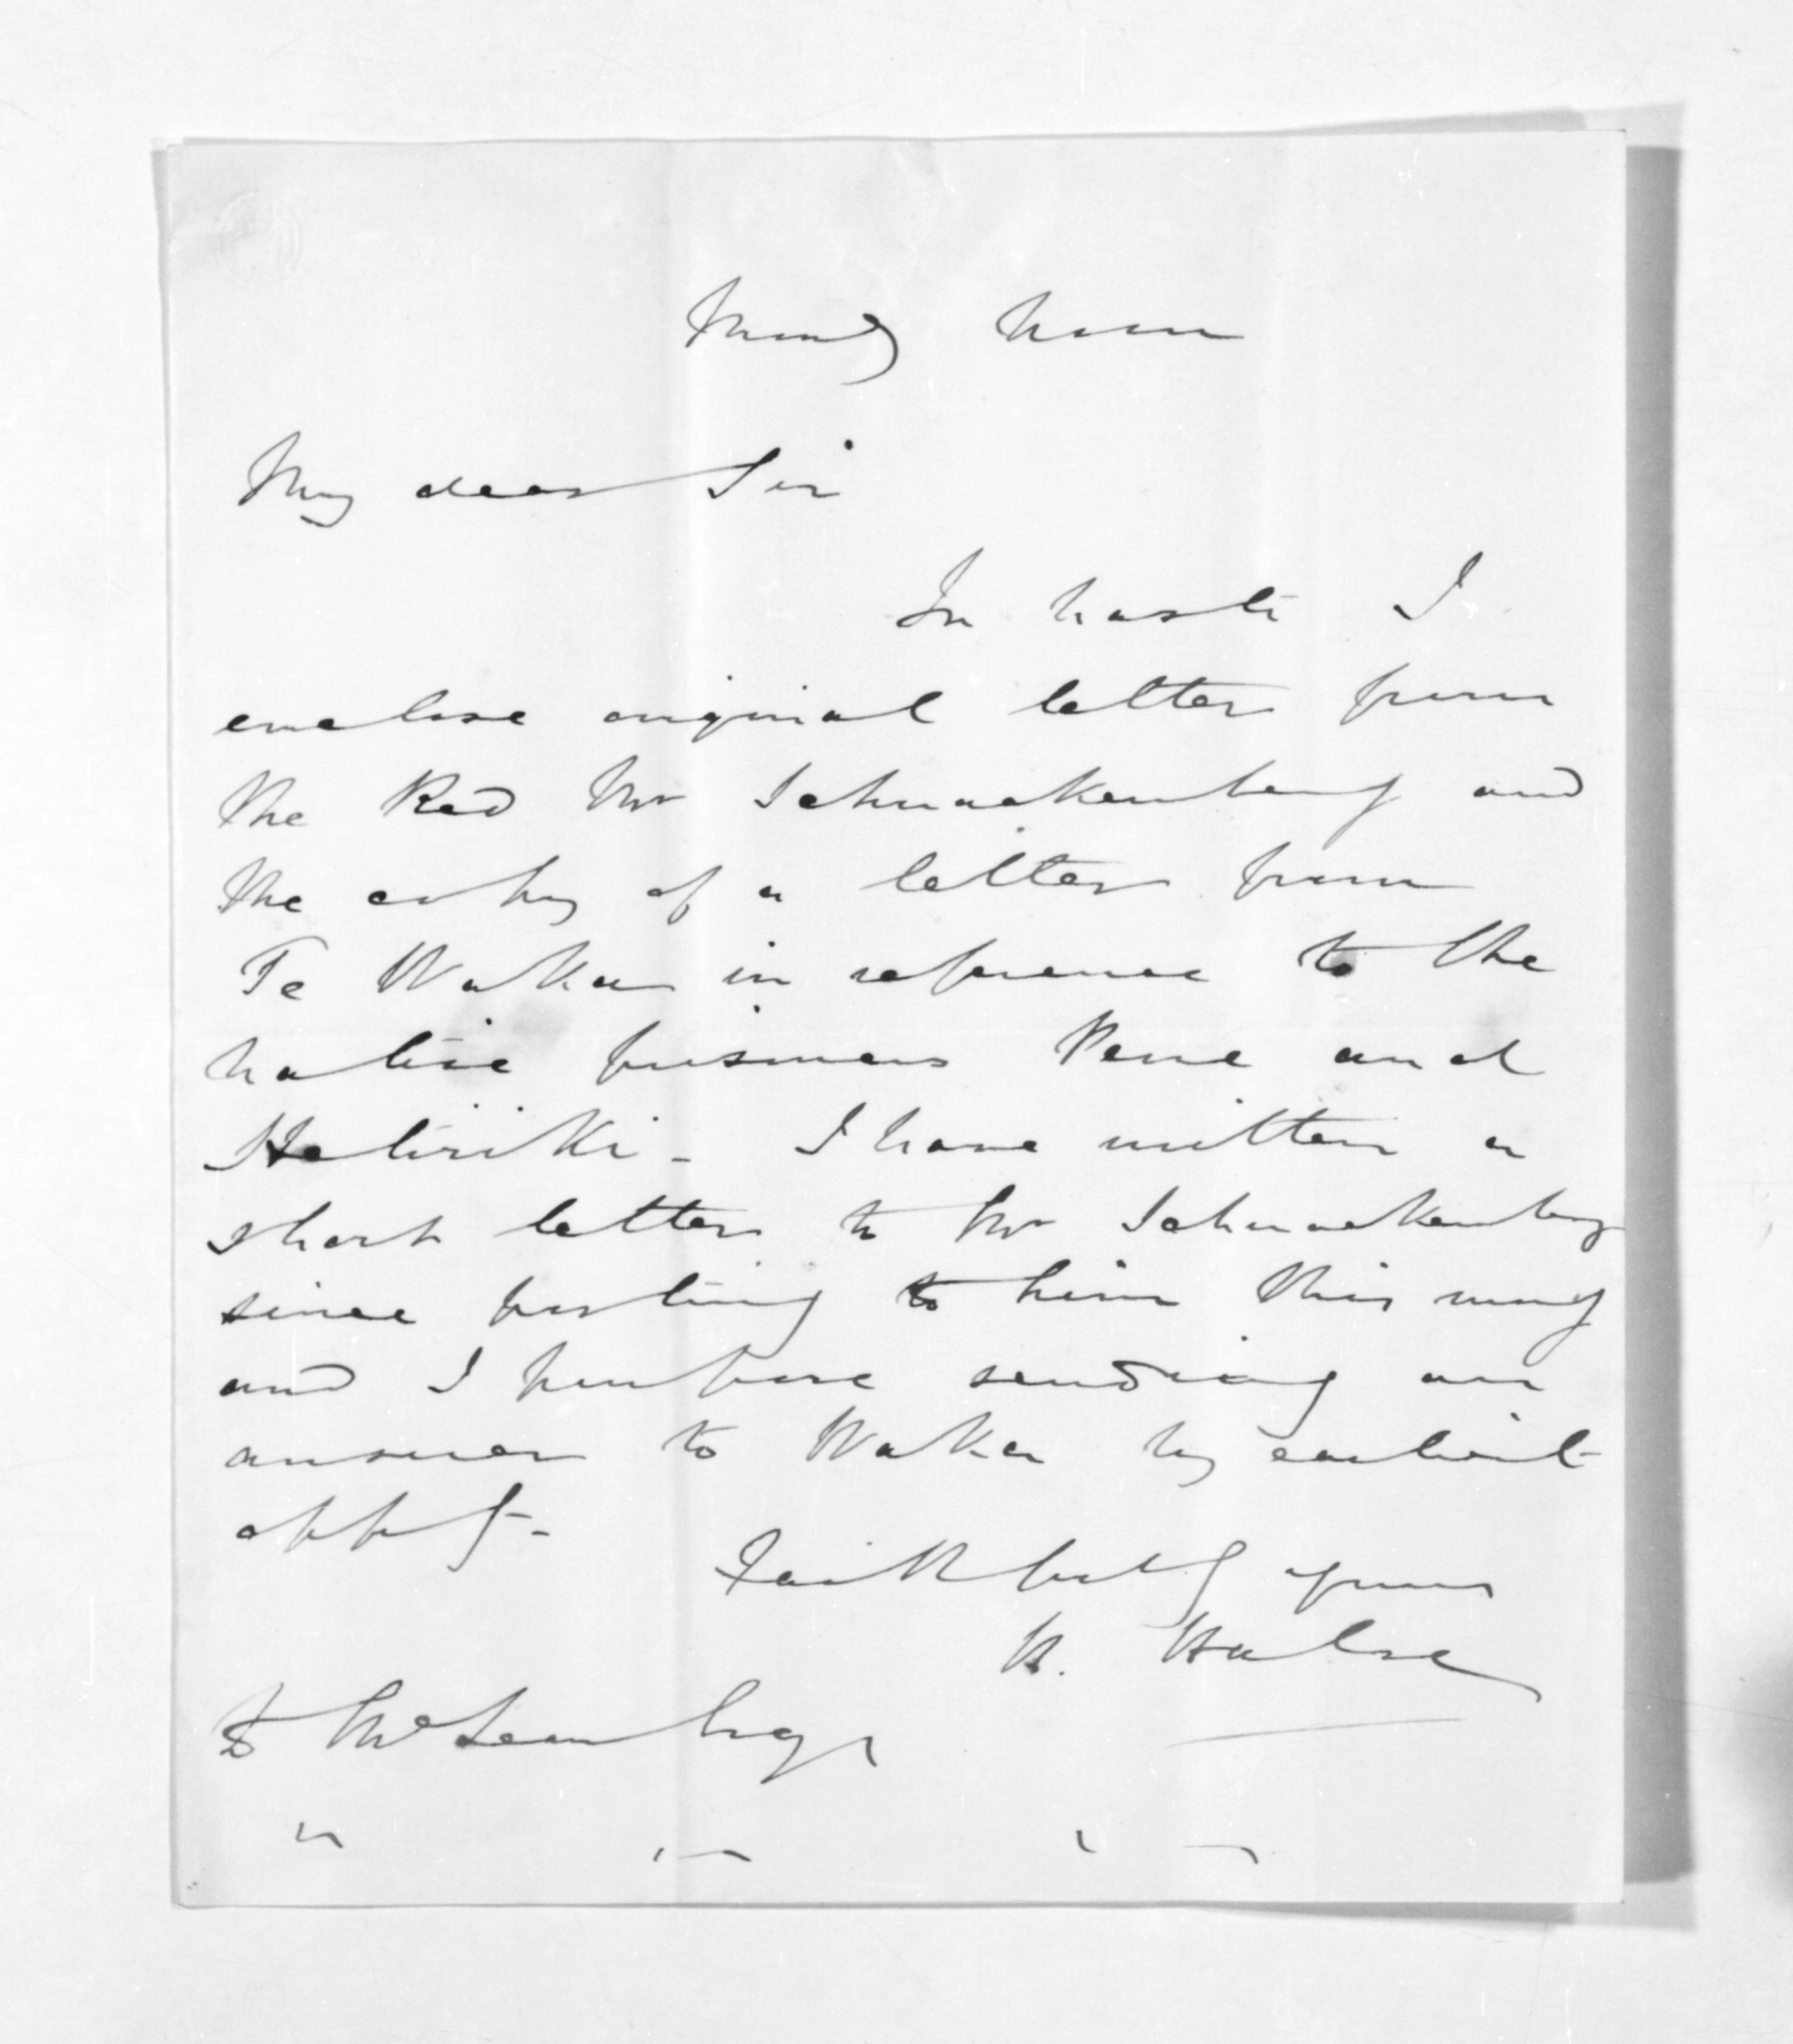 Mondy Noon
My dear Sir
In haste I
enclose original letter from
the Red Mr Schnackenberg and
the copy of a letter from
Te Waka in reference to the
native prisoners Pene and
Hetiriki - I have written a
short letter to Mr Schnackenberg
since posting to him this mng
and I purpose sending an
answer to Waka by earliest
oppy -
Faithfully yours
H. Halse
D McLean Esqr
" " "